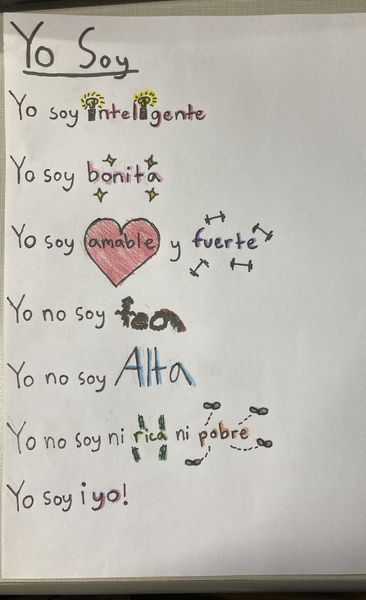 Yo Soy
Yo soy inteligente
Yo soy bonita
Yo soy amable y fuerte
Yo no soy fea
Yo no soy Alta
Yo no soy ni rica ni pobre
Yo soy ¡yo!